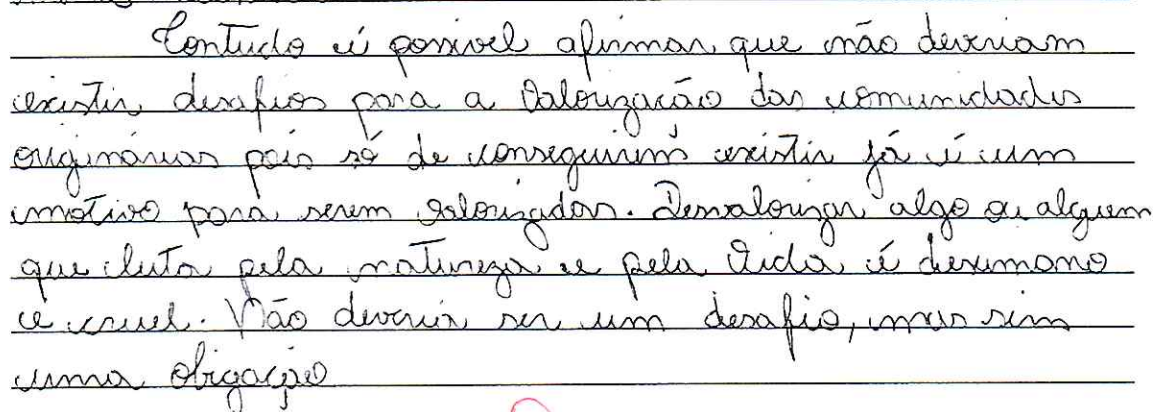 Contudo é possivel afirmar que não deveriam
existir desafios para a valorização das comunidades
originárias pois só de conseguirem existir já é um
motivo para serem valorizados. Desvalorizar algo ou alguem
que luta pela natureza e pela vida é desumano
e cruel. Não deveria ser um desafio, mas sim
uma obrigação